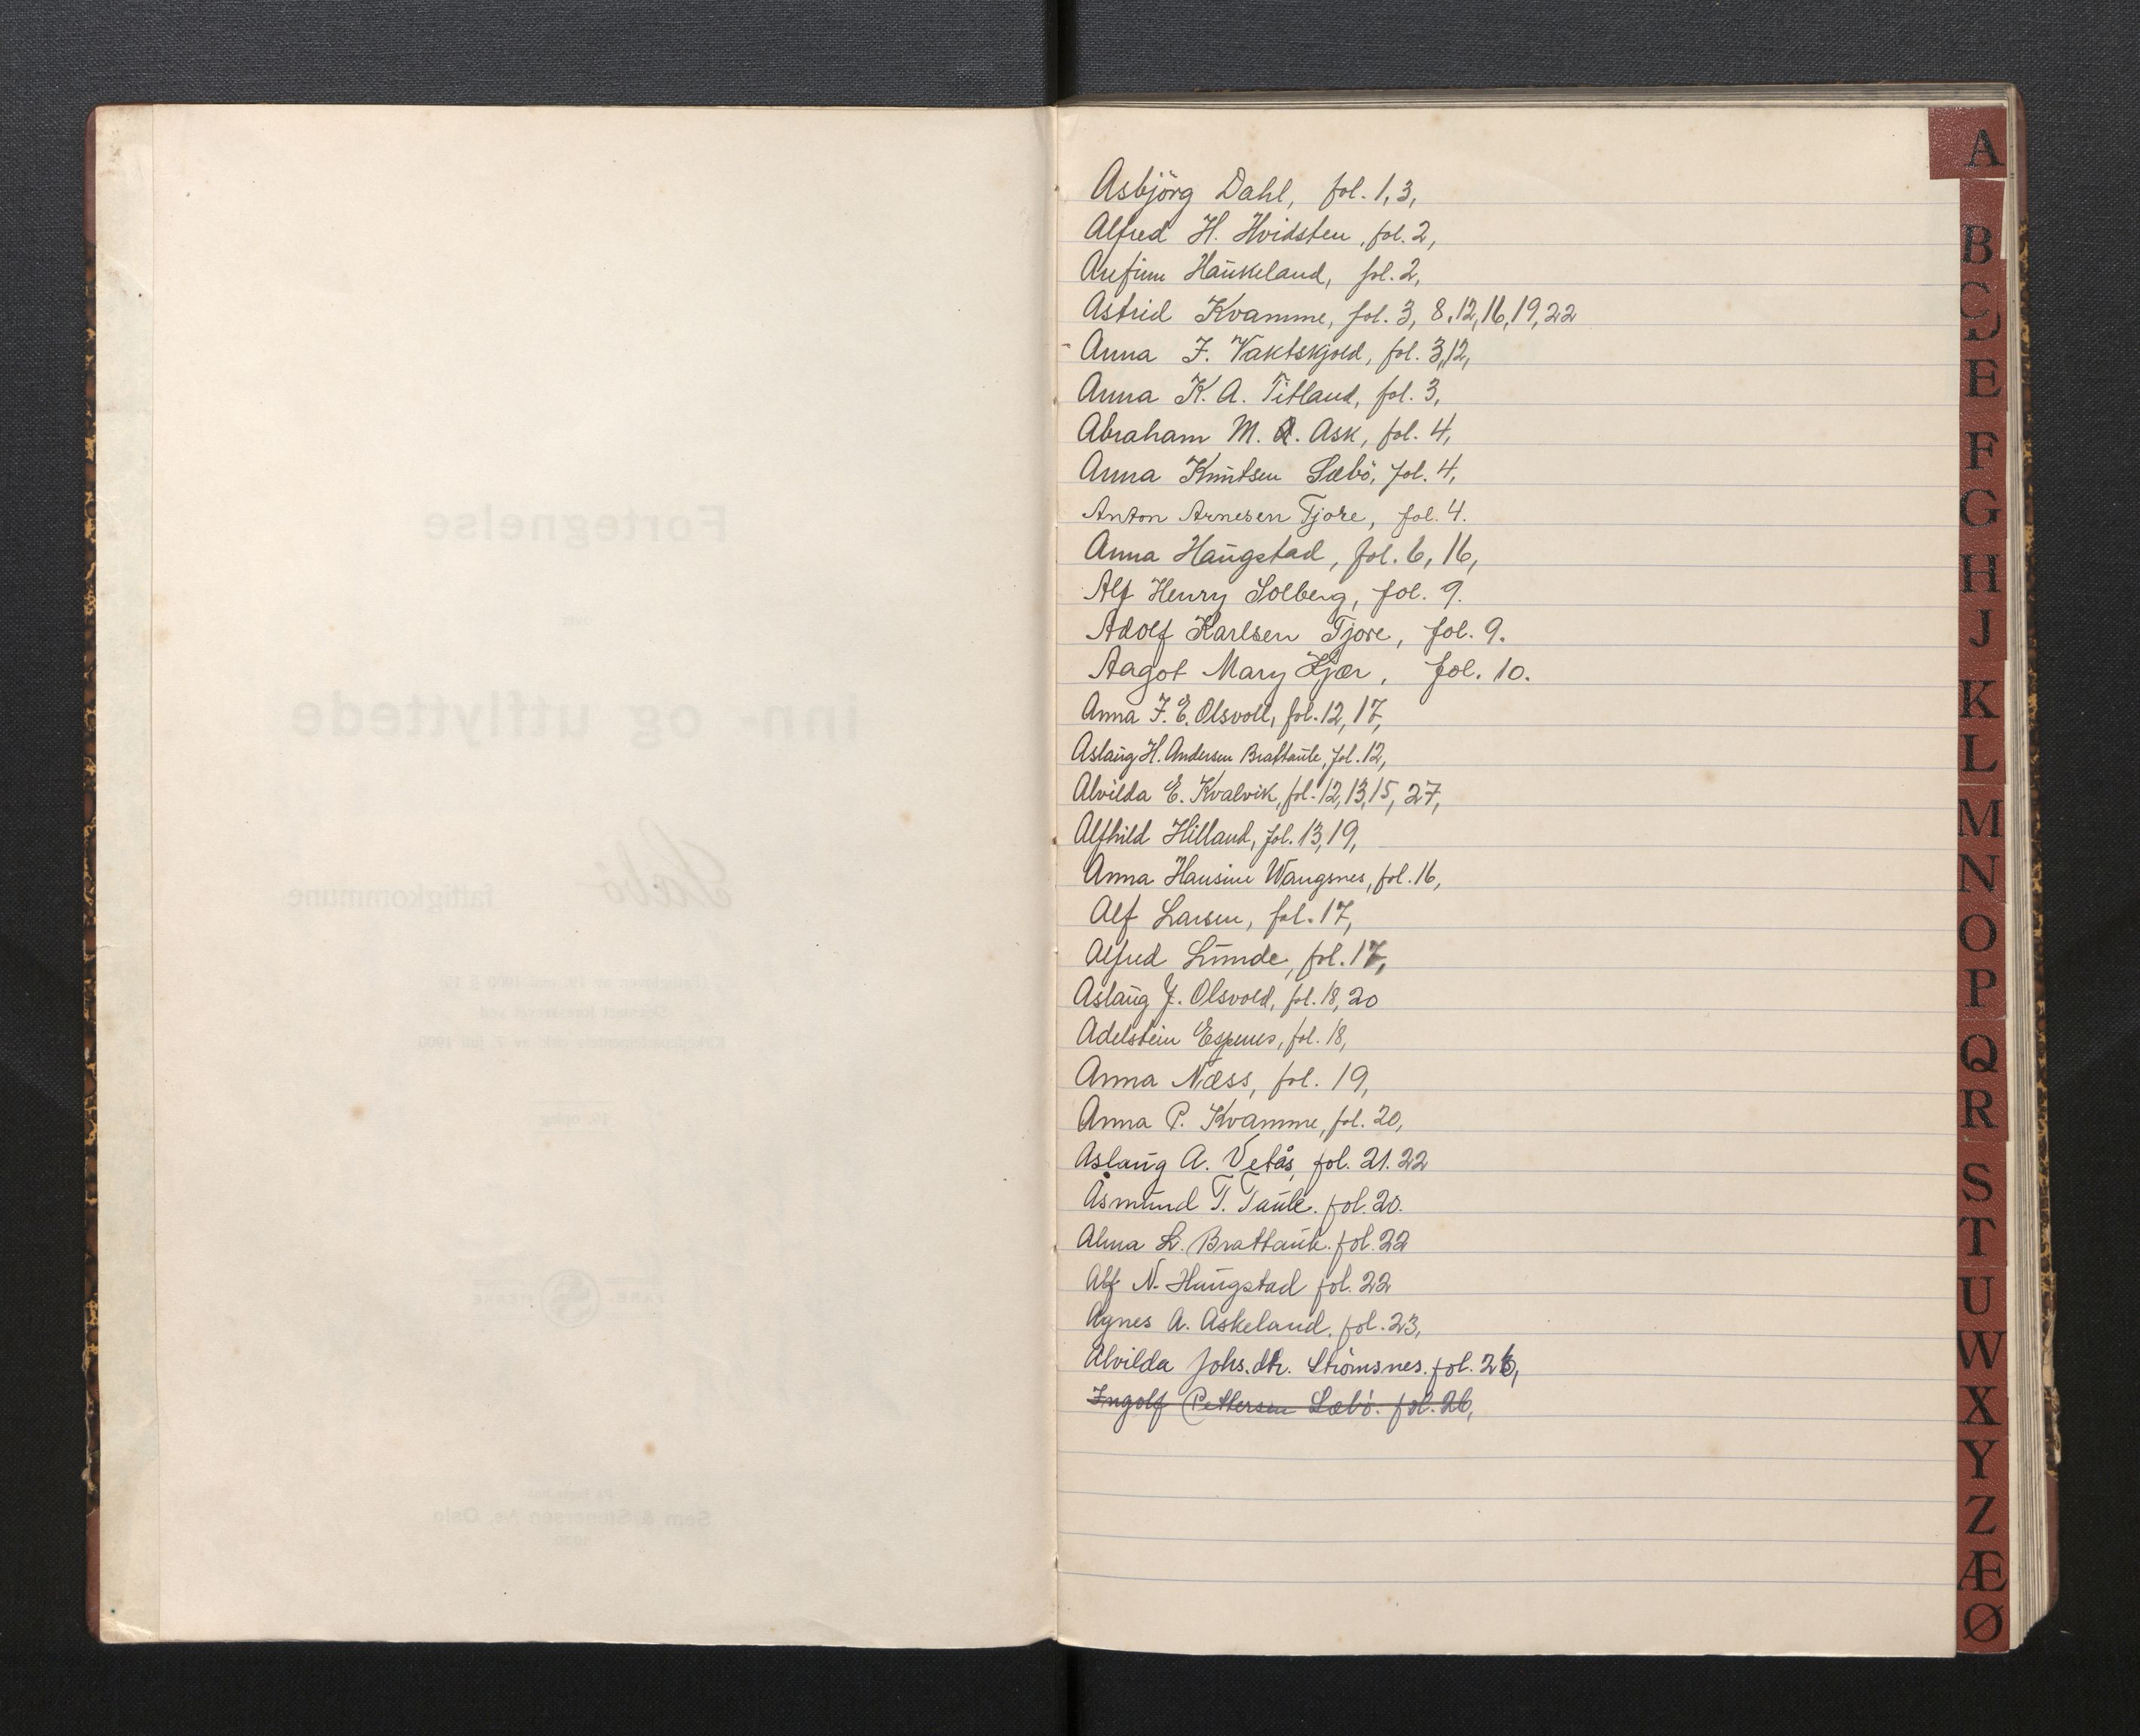 Asbjörg Dahl, fol. 1, 3,
Alfred H. Hvidsten, fol. 2,
Arefinn Haukeland, fol. 2,
Astrid Kvamme, fol. 3, 8, 12, 16, 19, 22
Anna F. Vaktskjold, fol. 3, 12,
Anna K. A. Titland, fol. 3,
Abraham M. A. Ask, fol. 4,
Anna Knutsen Sæbö, fol. 4,
Anton Arnesen Tjore, fol. 4.
Anna Haugstad, fol. 6, 16,
Alf Henry Solberg, fol. 9.
Adolf Karlsen Tjore, fol. 9.
Aagot Mary Kjær, fol. 10.
Anna F. E. Olsvoll, fol. 12, 17,
Aslaug H. Andersen Brattaule, fol. 12,
Alvilda E. Kvalvik, fol. 12, 13, 15, 27,
Alfhild Hilland, fol. 13, 19,
Anna Hansine Wangsnes, fol. 16,
Alf Larsen, fol. 17,
Alfred Lunde, fol. 17,
Aslaug J. Olsvold, fol. 18, 20
Adelstein Espenes, fol. 18,
Anna Næss, fol. 19,
Anna P. Kvamme, fol. 20,
Aslaug A. Vetås, fol. 21. 22
Åsmund T. Taule. fol. 20.
Alma L. Brattaule. fol. 22
Alf N. Haugstad fol. 22
Agnes A. Askeland. fol. 23,
Alvilda Johs.dtr. Strömsnes. fol. 26,
Ingolf Pettersen Sæbö. fol. 26,
A
B
C
D
E
F
G
H
J
K
L
M
N
O
P
Q
R
S
T
U
W
X
Y
Z
Æ
Ø
Fortegnelse
over
inn- og utflyttede
Sæbö